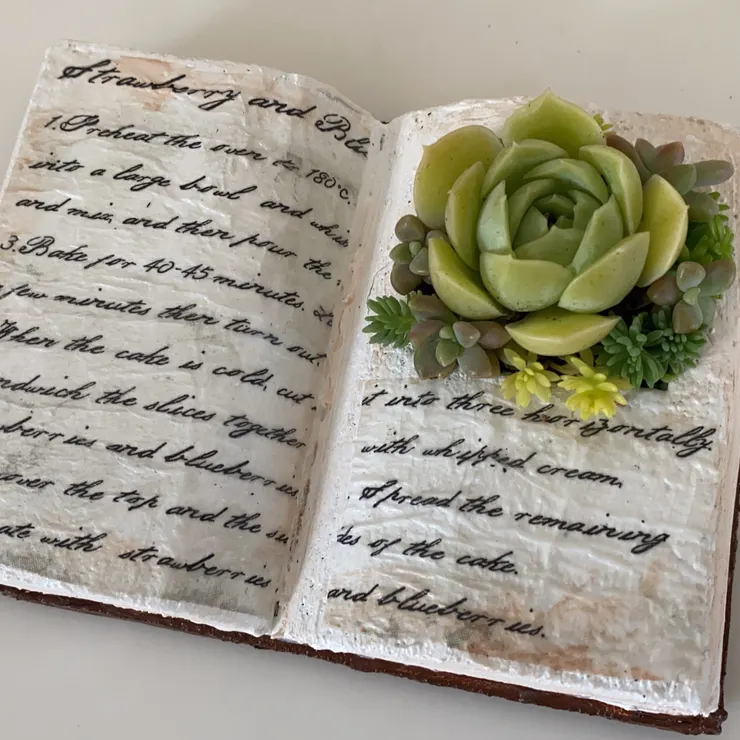 Strawberry and Blu
1. Preheat the oven to 180°c.
into a large bowl and whis
and mix. and then pour the
3. Bake for 40-45 minutes. Le
few minutes then turn out.
When the cake is cold, cut
andwich the slices together
berries and blueberries
over the top and the su
ate with strawberries
it into three horizontally.
with whipped cream.
Spread the remaining
des of the cake.
and blueberries.